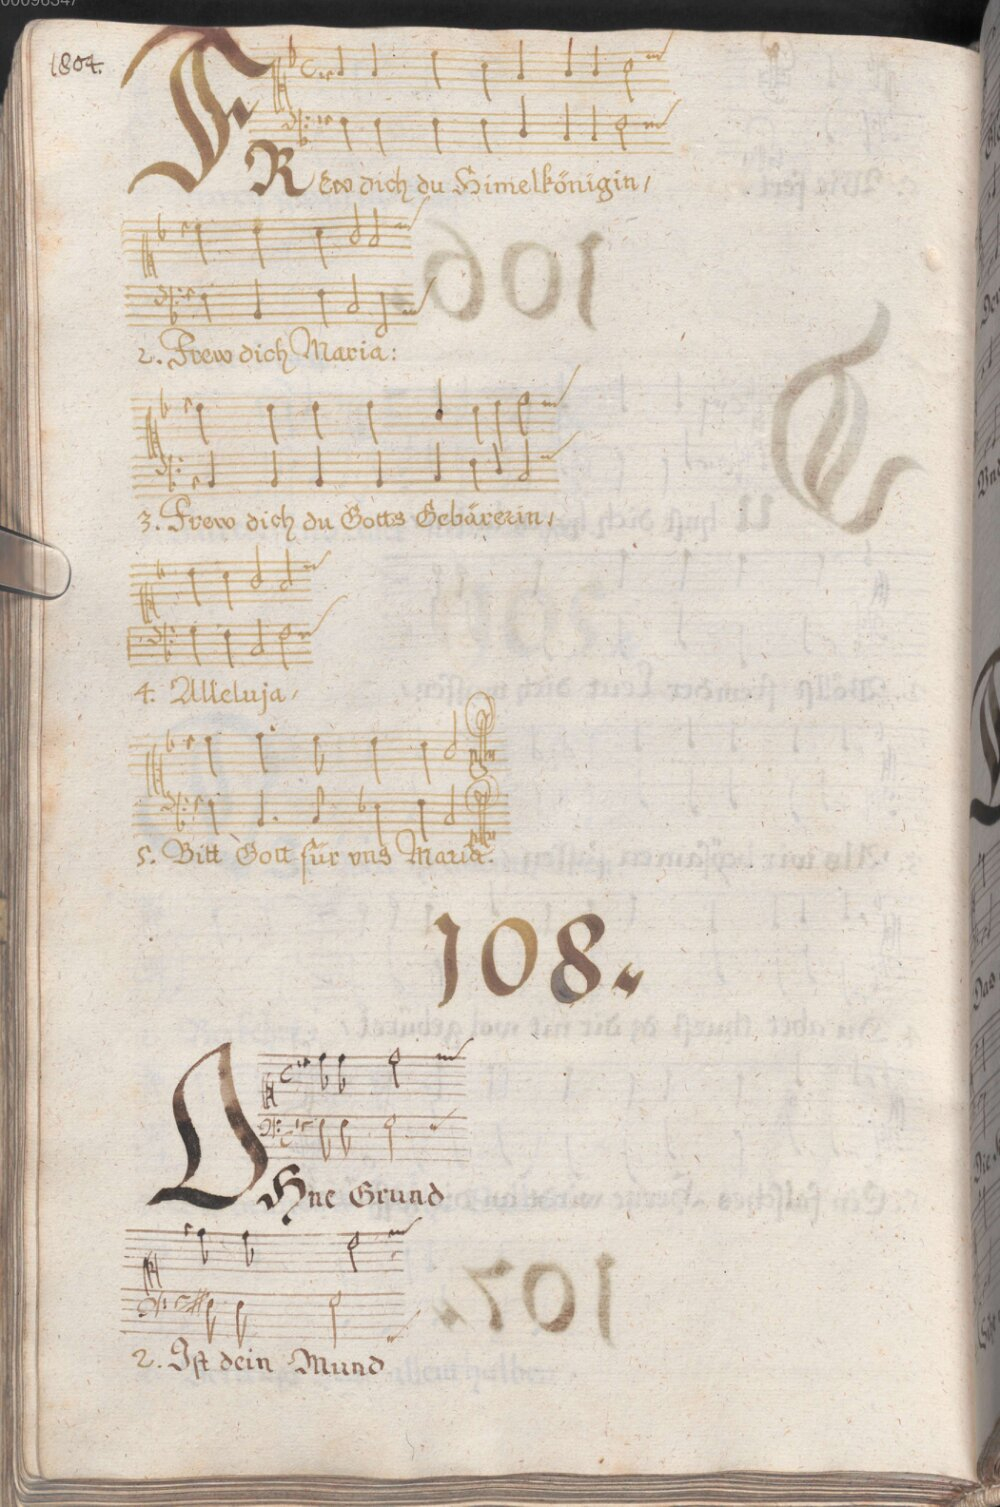 00096347
1804.
FRew dich du Himelkönigin/
2. Frew dich Maria:
3. Frew dich du Gotts Gebärerin,
4. Alleluja,
5. Bitt Gott für vns Maria.
108.
OHne Grund
2. Ist dein Mund